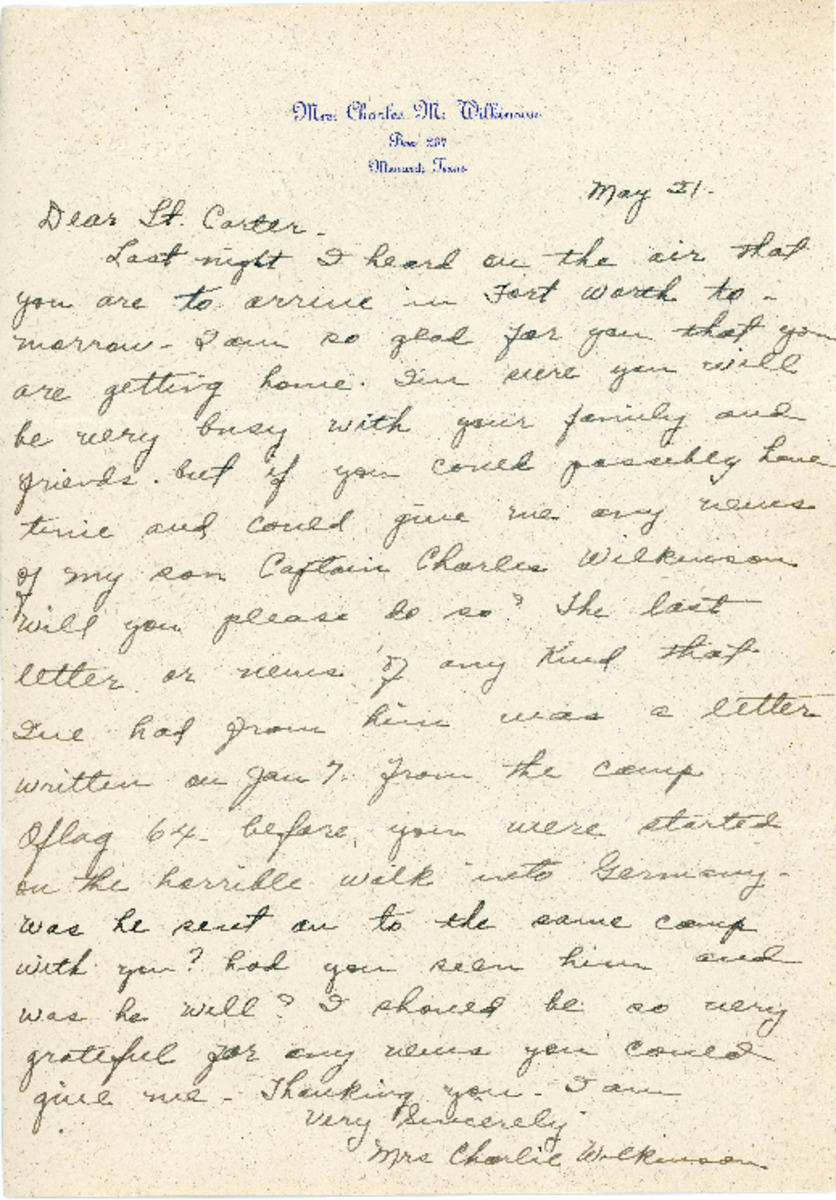 Mrs. Charles M. Wilkinson
Box 267
Menard, Texas
May 21.
Dear Lt. Carter.
Last night I heard on the air that
you are to arrive in Fort Worth to-
morrow - I am so glad for you that you
are getting home. I'm sure you will
be very busy with your family and
friends. but if you could possibly have
time and could give me any news
of my son Captain Charles Wilkinson
will you please do so? The last
letter or news of any kind that
I've had from him was a letter
written on Jan 7. from the camp
Oflag 64 - before you were started
on the horrible walk into Germany -
was he sent on to the same camp
with you? had you seen him and
was he well? I should be so very
grateful for any news you could
give me - Thanking you - I am
Very Sincerely
Mrs Charlie Wilkinson.